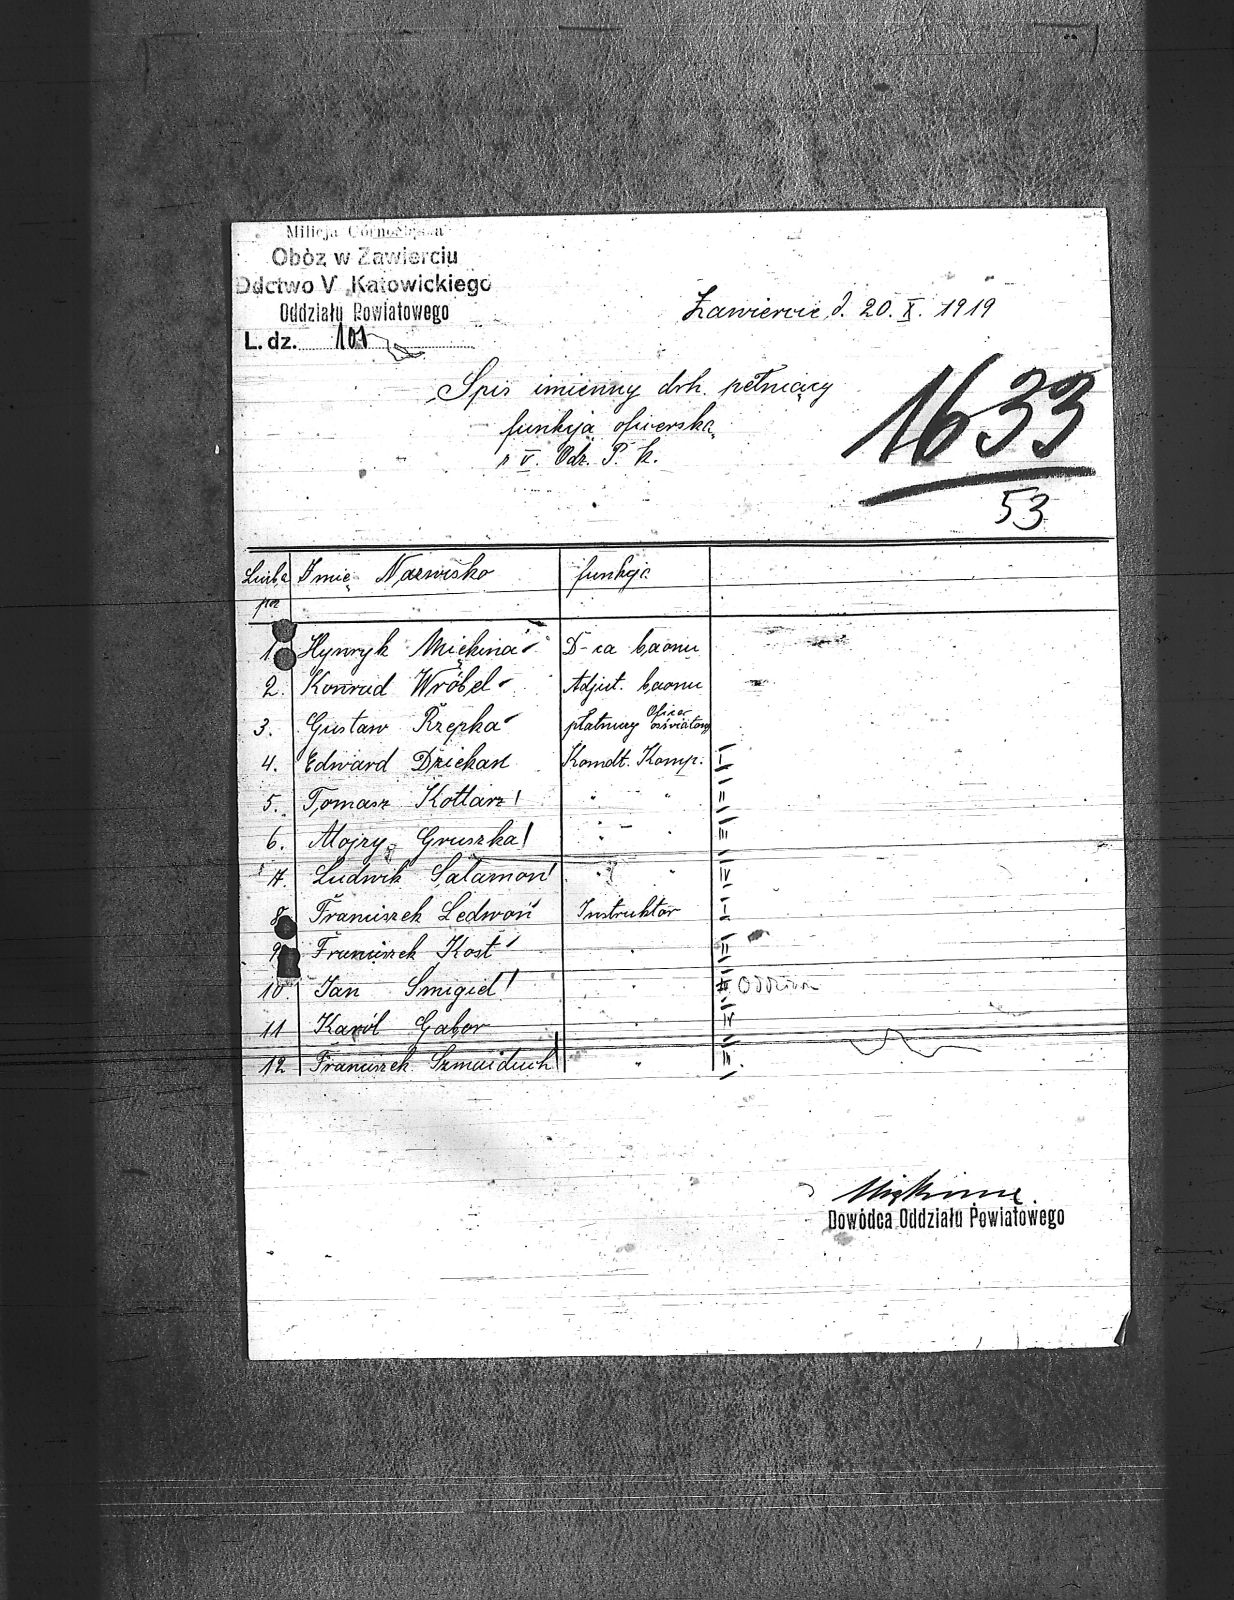 Milicja Górnośląska
Obóz w Zawierciu
Ddctwo V Katowickiego
Oddziału Powiatowego
L. dz. 101
Zawiercie, d. 20. X. 1919
Spis imienny drh. pełniący
funkcją oficerską
V. Odz. P. K.
1633
53
Liczba por Imię Nazwisko funkcja
1. Hynryk Miękina D-ca baonu
2. Konrad Wróbel Adjut. baonu
3. Gustaw Rzepka płatniczy Oficer oświatowy
4. Edward Dziekan Komdt. Komp.
5. Tomasz Kotlarz " "
6. Alojzy Gruszka " "
7. Ludwik Salamon " "
8. Franciszek Ledwoń Instruktor
9. Franciszek Kost "
10. Jan Smigiel "
11 Karól Gabor "
12 Franciszek Szmaiduch "
Miękina
Dowódca Oddziału Powiatowego